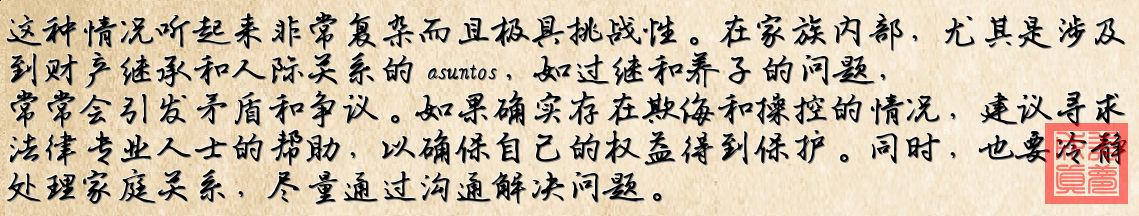 这种情况听起来非常复杂而且极具挑战性。在家族内部，尤其是涉及
到财产继承和人际关系的 asuntos，如过继和养子的问题，
常常会引发矛盾和争议。如果确实存在欺侮和操控的情况，建议寻求
法律专业人士的帮助，以确保自己的权益得到保护。同时，也要冷静
处理家庭关系，尽量通过沟通解决问题。